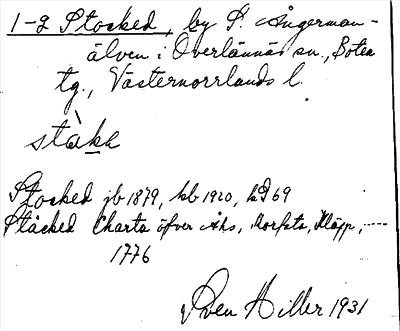 1-2 Stocked, by S. Ångerman-
älven i Överlännäs sn., Boteå
tg., Västernorrlands l.
ståkk
Stocked jb 1879, kb 1920, kD 69
Ståcked Charta öfver Åhs, Korsta, Kläpp, ----
1776
Sven Hiller 1931